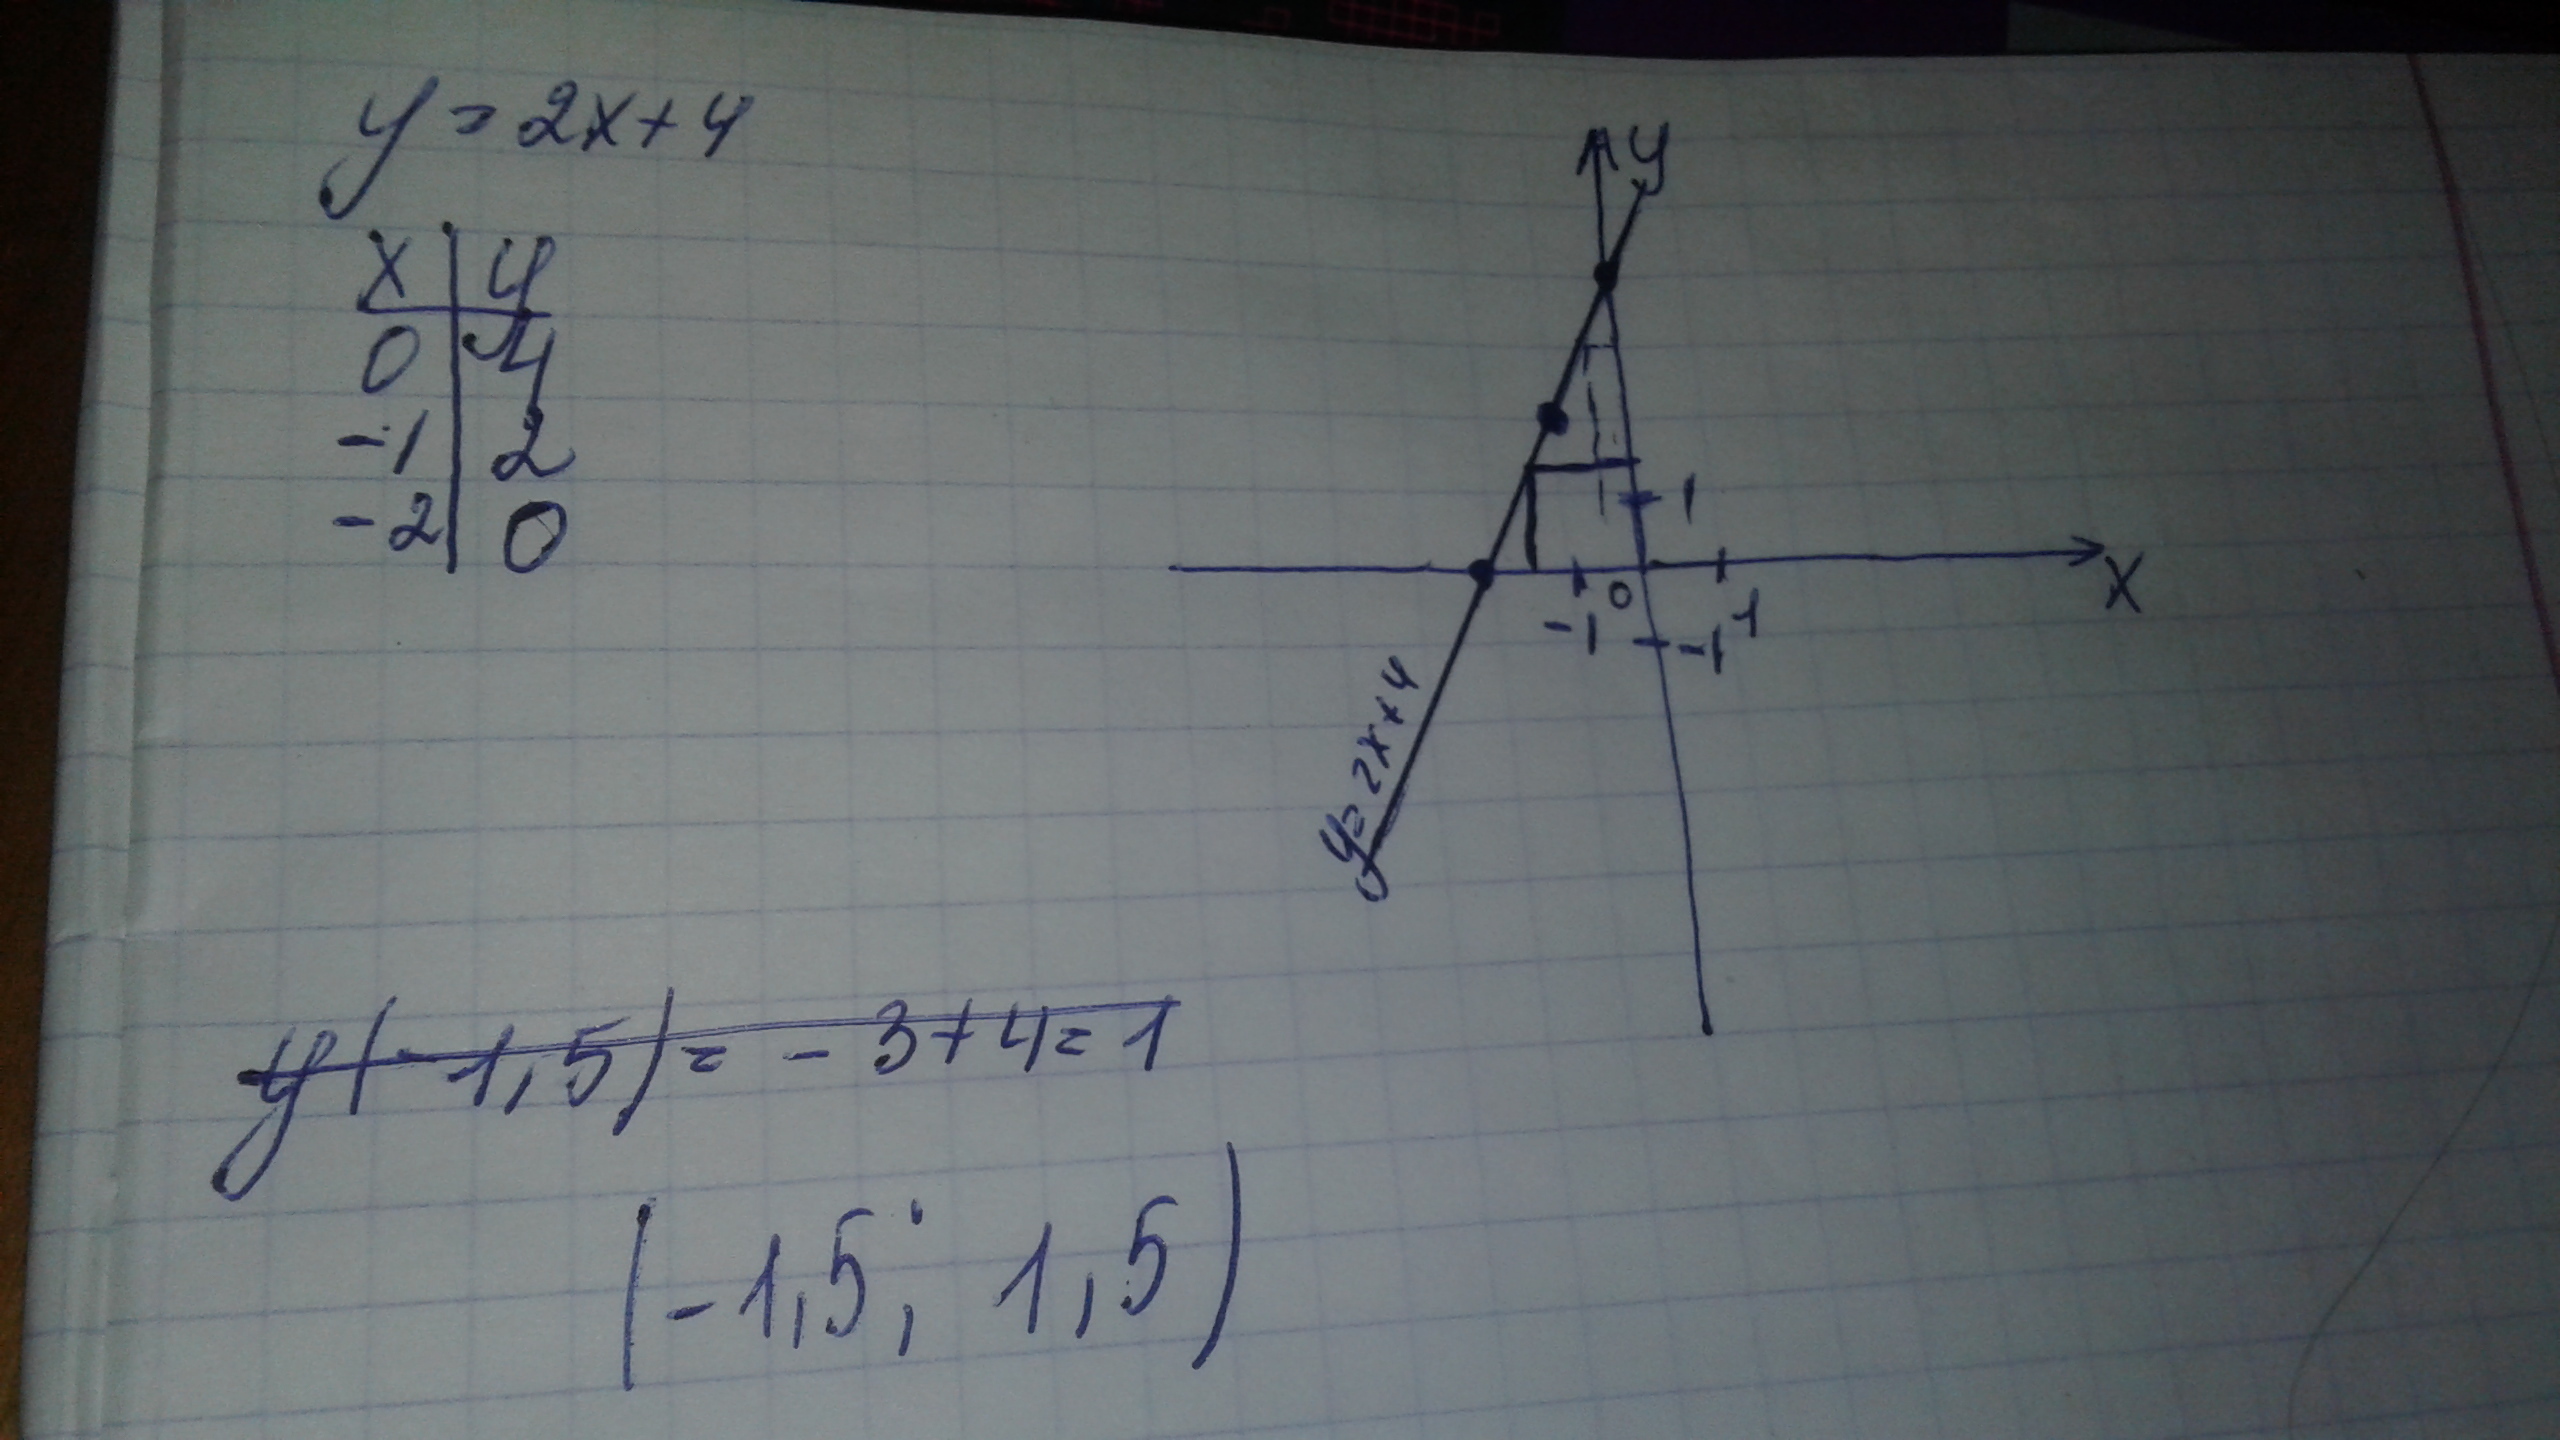 y = 2x + 4
x | y
0 | 4
-1 | 2
-2 | 0
y
1
x
-1 0 1
-1
y = 2x + 4
y(-1,5) = -3 + 4 = 1
(-1,5; 1,5)